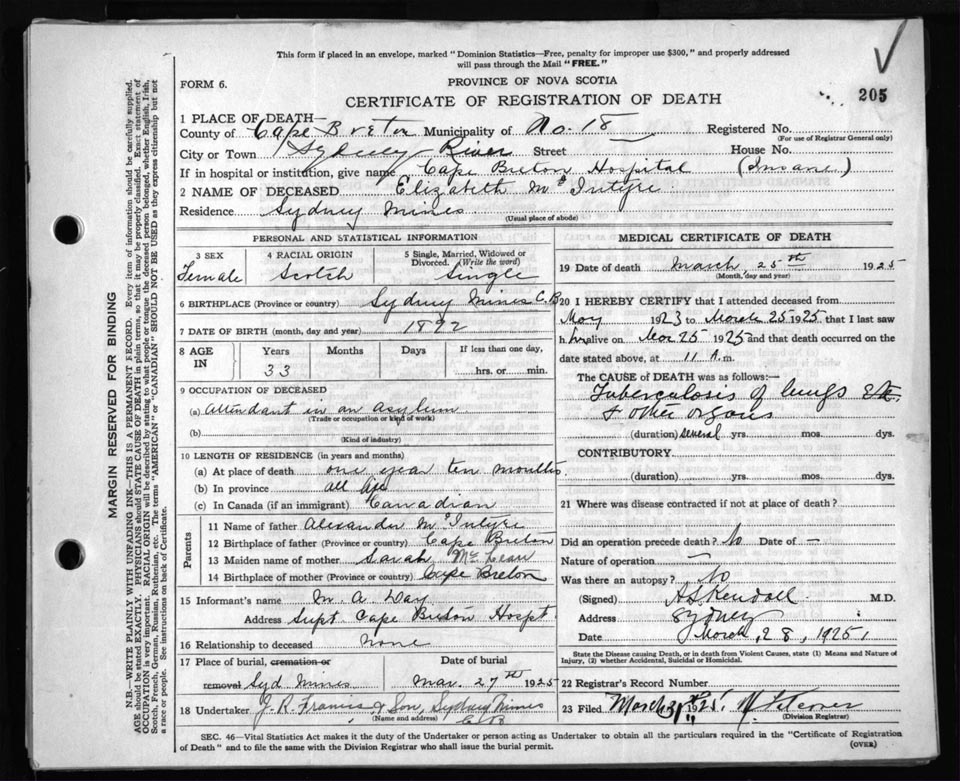 This form if placed in an envelope, marked "Dominion Statistics—Free, penalty for improper use $300," and properly addressed
will pass through the Mail "FREE."
FORM 6.
PROVINCE OF NOVA SCOTIA
205
CERTIFICATE OF REGISTRATION OF DEATH
1 PLACE OF DEATH—
County of Cape Breton Municipality of No. 18 Registered No.
(For use of Registrar General only)
City or Town Sydney River Street — House No.
If in hospital or institution, give name Cape Breton Hospital (Insane)
2 NAME OF DECEASED Elizabeth McIntyre
Residence Sydney Mines
(Usual place of abode)
PERSONAL AND STATISTICAL INFORMATION
3 SEX Female
4 RACIAL ORIGIN Scotch
5 Single, Married, Widowed or Divorced. (Write the word) Single
6 BIRTHPLACE (Province or country) Sydney Mines C.B
7 DATE OF BIRTH (month, day and year) 1892
8 AGE IN
Years Months Days If less than one day,
33 hrs. or min.
9 OCCUPATION OF DECEASED
(a) Attendant in an asylum
(Trade or occupation or kind of work)
(b)
(Kind of industry)
10 LENGTH OF RESIDENCE (in years and months)
(a) At place of death one year ten months.
(b) In province all life
(c) In Canada (if an immigrant) Canadian
Parents
11 Name of father Alexander McIntyre
12 Birthplace of father (Province or country) Cape Breton
13 Maiden name of mother Sarah McLean
14 Birthplace of mother (Province or country) Cape Breton
15 Informant's name M. A. Day
Address Supt Cape Breton Hospt
16 Relationship to deceased none
17 Place of burial, cremation or removal Syd Mines
Date of burial Mar. 27th 1925
18 Undertaker J. R. Francis & Son, Sydney Mines
(Name and address) C.B
MEDICAL CERTIFICATE OF DEATH
19 Date of death March 25th 1925
(Month, day and year)
20 I HEREBY CERTIFY that I attended deceased from
May 1923 to March 25 1925 that I last saw
her alive on Mar 25 1925 and that death occurred on the
date stated above, at 11 A.m.
The CAUSE OF DEATH was as follows:—
Tuberculosis of lungs Etc.
& other organs
(duration) several yrs. mos. dys.
CONTRIBUTORY
(duration) yrs. mos. dys.
21 Where was disease contracted if not at place of death?
Did an operation precede death? No Date of —
Nature of operation —
Was there an autopsy? No
(Signed) A S Kendall M.D.
Address Sydney
Date March, 28, 1925
State the Disease causing Death, or in death from Violent Causes, state (1) Means and Nature of
Injury, (2) whether Accidental, Suicidal or Homicidal.
22 Registrar's Record Number
23 Filed March 31
(Division Registrar)
SEC. 46—Vital Statistics Act makes it the duty of the Undertaker or person acting as Undertaker to obtain all the particulars required in the "Certificate of Registration
of Death" and to file the same with the Division Registrar who shall issue the burial permit.
(OVER)
MARGIN RESERVED FOR BINDING
N.B.—WRITE PLAINLY WITH UNFADING INK—THIS IS A PERMANENT RECORD. Every item of information should be carefully supplied.
AGE should be stated EXACTLY. PHYSICIANS should STATE CAUSE OF DEATH in plain terms, so that it may be properly classified. Exact statement of
OCCUPATION is very important. RACIAL ORIGIN will be described by stating to what people or tongue the deceased person belonged, whether English, Irish,
Scotch, French, German, Russian, Ruthenian, etc. The terms "AMERICAN" or "CANADIAN" SHOULD NOT BE USED as they express citizenship but not
a race or people. See instructions on back of Certificate.